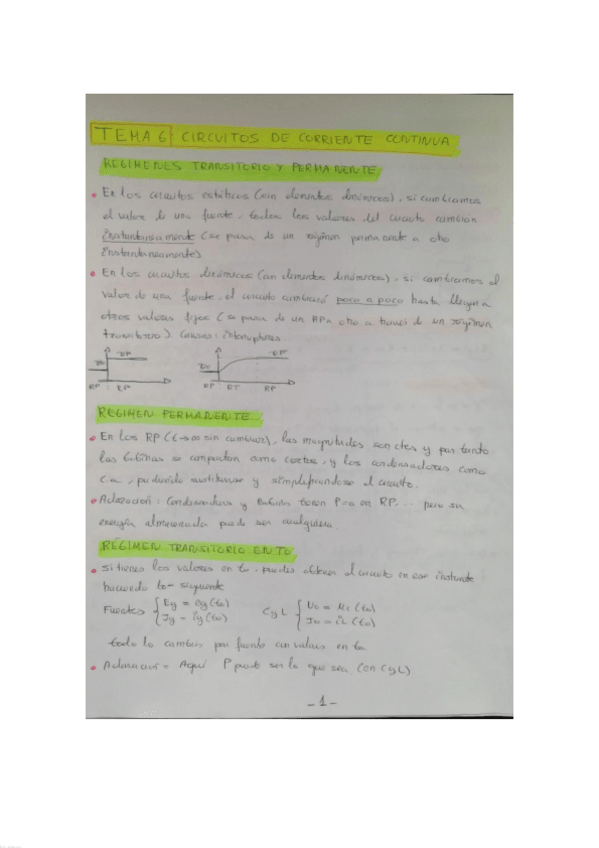 TEMA 6 CIRCUITOS DE CORRIENTE CONTINUA
REGIMENES TRANSITORIO Y PERMANENTE
• En los circuitos estáticos (sin elementos dinámicos), si cambiamos
el valor de una fuente, todos los valores del circuito cambian
instantáneamente (se pasa de un régimen permanente a otro
instantáneamente)
• En los circuitos dinámicos (con elementos dinámicos), si cambiamos el
valor de una fuente, el circuito cambiará poco a poco hasta llegar a
otros valores fijos (se pasa de un RP a otro a través de un régimen
transitorio). Causas: interruptores.
RP RP
RP RP RP RT RP
REGIMEN PERMANENTE
• En los RP (t→∞ sin cambiar), las magnitudes son ctes y por tanto
las bobinas se comportan como cortos, y los condensadores como
c.a., pudiendo sustituirse y simplificandose el circuito.
• Aclaración: Condensadores y bobinas tienen P=0 en RP... pero su
energía almacenada puede ser cualquiera.
RÉGIMEN TRANSITORIO EN t0
• si tienes los valores en t0, puedes obtener el circuito en ese instante
haciendo lo siguiente
Fuentes { Eg = eg(t0) C y L { U0 = uc(t0)
Jg = ig(t0) J0 = iL(t0)
todo lo cambio por fuente con valores en t0
• Aclaración: Aquí P puede ser lo que sea (en C y L)
- 1 -